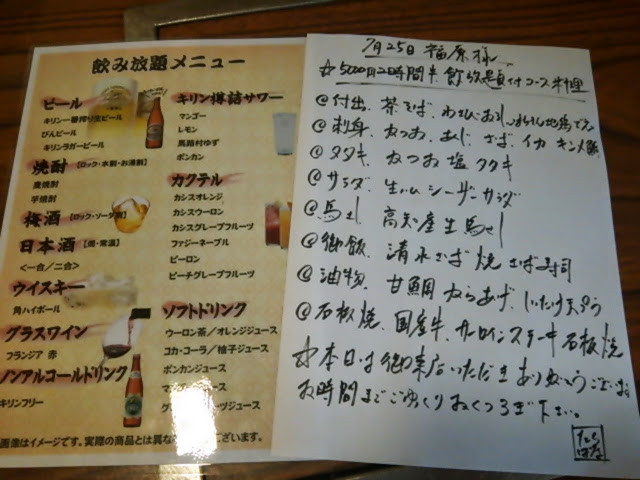 飲み放題メニュー
ビール
キリン一番搾り生ビール
びんビール
キリンラガービール
焼酎【ロック・水割・お湯割】
麦焼酎
芋焼酎
梅酒【ロック・ソーダ割】
日本酒【燗・常温】
<一合/二合>
ウイスキー
角ハイボール
グラスワイン
フランジア 赤
ノンアルコールドリンク
キリンフリー
キリン樽詰サワー
マンゴー
レモン
馬路村ゆず
ポンカン
カクテル
カシスオレンジ
カシスウーロン
カシスグレープフルーツ
ファジーネーブル
ピーロン
ピーチグレープフルーツ
ソフトドリンク
ウーロン茶/オレンジジュース
コカ・コーラ/柚子ジュース
ポンカンジュース
マンゴージュース
ジュース
※画像はイメージです。実際の商品とは異なる ございます。
7月25日 福原様
☆5000円2時間半 飲放題付コース料理
@付出、茶そば、わさびおろし
@刺身、かつお、あじ、さば、イカ キンメ鯛
@タタキ、かつお塩タタキ
@サラダ、生ハムシーザーサラダ
@馬さし 高知産生馬さし
@御飯、清水さば 焼さば寿司
@油物、甘鯛からあげ、しいたけ天ぷら
@石板焼、国産牛、サーロインステーキ石板焼
☆本日は御来店いただきありがとうございます
お時間までごゆっくりおくつろぎ下さい。